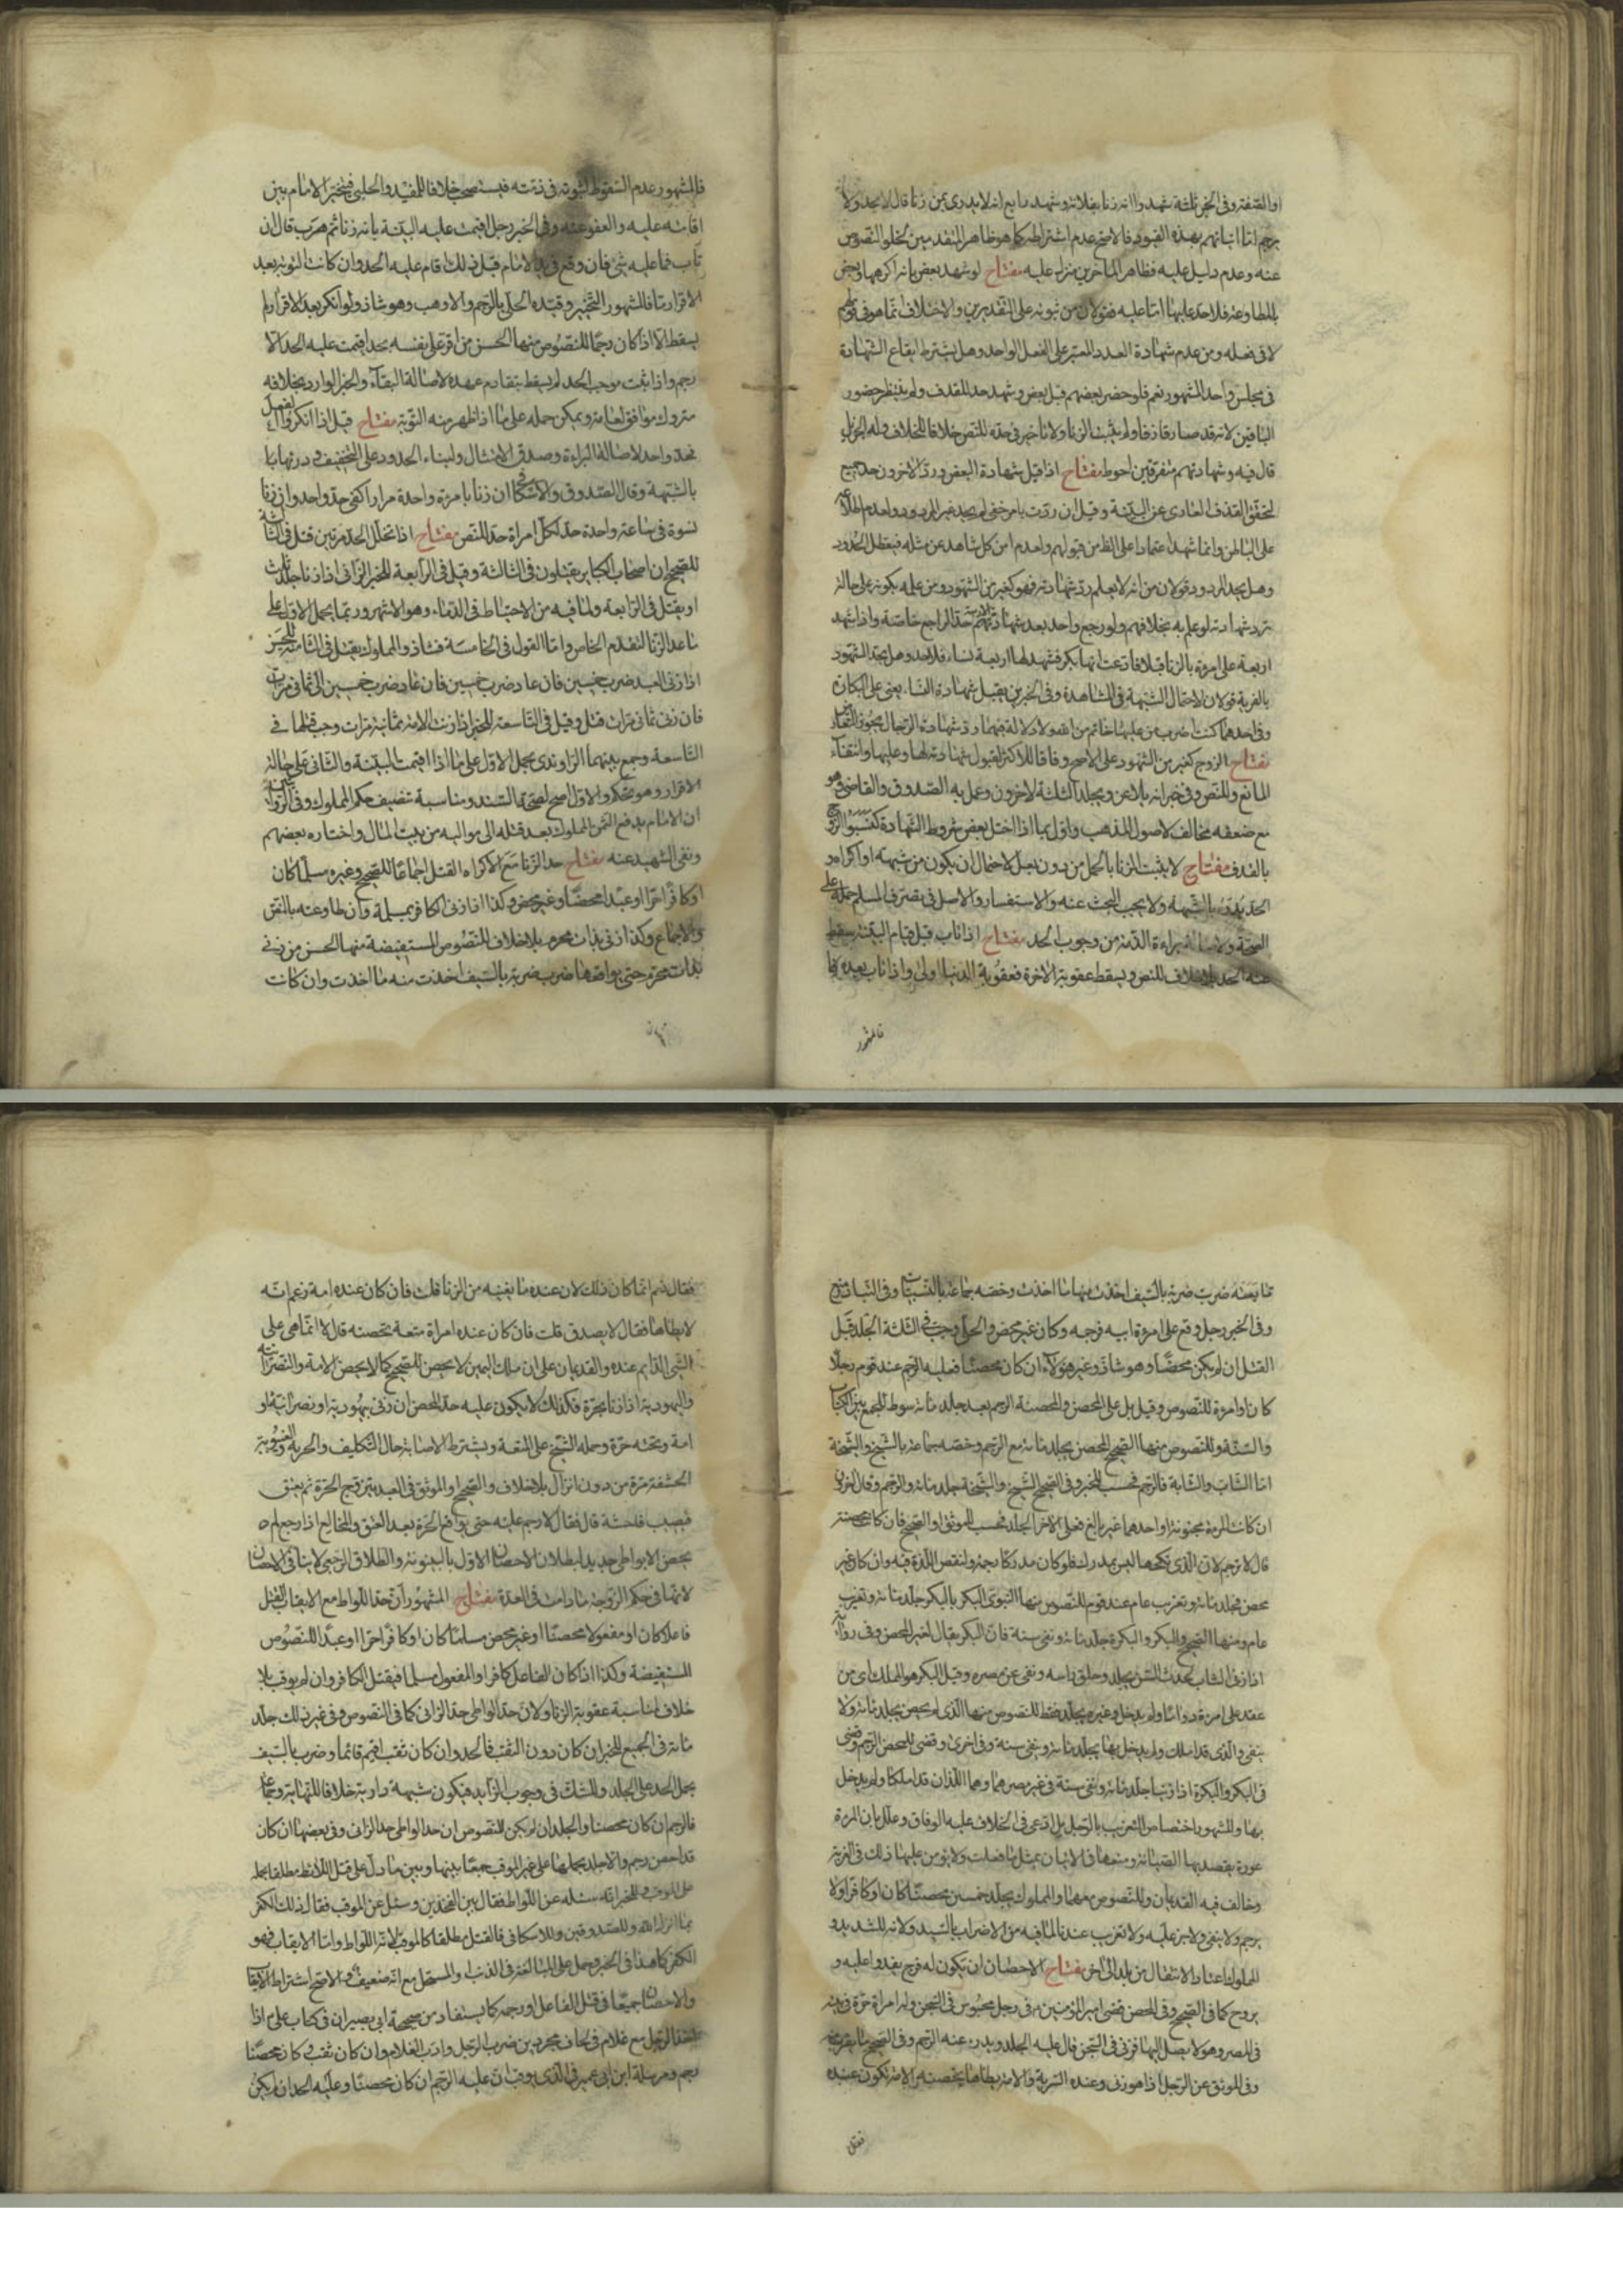 او الصفة وفى الخبر ثلثة شهدوا انه زنا بفلانة وشهد رابع انه لا يدرى بمن زنا قال لا يحد ولا
يرجم اما اتيانهم بهذه القيود فالاصح عدم اشتراطه كما هو ظاهر المتقدمين لخلو النصوص
عنه وعدم دليل عليه فظاهر المتاخرين منزل عليه مفتاح لو شهد بعض بانه اكرهها وبعض
بالمطاوعة فلا حد عليها اما عليه فقولان من ثبوته على التقديرين والاختلاف انما هو فى
لا فى فعله ومن عدم شهادة العدد المعتبر على الفعل الواحد وهل يشترط ايقاع الشهادة
فى مجلس واحد المشهور نعم فلو حضر بعضهم قبل بعض وشهد حد للقذف ولم ينتظر حضور
الباقين لانه قد صار قاذفا ولم يثبت الزنا ولا تاخير فى حده للنص خلافا للخلاف وله
قال فيه وشهادتهم متفرقين احوط مفتاح اذا قبل شهادة البعض ورد الاخرون حد جميع
لتحقق القذف العارى عن البينة وقيل ان ردت بامر خفى لم يحد غير المردود ولعدم
على الباطن وانما شهد اعتمادا على الظن من قبولهم ولعدم امن كل شاهد عن مثله فيعطل الحدود
وهل يحد المردود قولان من انه لا يعلم رد شهادته فهو كغيره من الشهود ومن علمه بكونه على حالة
ترد شهادته لو علم به بخلافهم ولو رجع واحد بعد شهادتهم حد الراجع خاصة واذا شهد
اربعة على امرءة بالزنا قبلا فادعت انها بكر فشهد لها اربعة نساء فلا حد وهل يحد الشهود
بالفرية قولان لاحتمال الشبهة فى المشاهدة وفى الخبرين يقبل شهادة النساء يعنى على البكارة
وفى احدهما كنت اضرب من عليها خاتم من الله ولا دلالة فيهما رد شهادة الرجال
مفتاح الزوج كغيره من الشهود على الاصح وفاقا للاكثر لقبول شهادته لها وعليها وانتفاء
المانع وللنص وفى خبر انه يلاعن ويجلد الثلثة الاخرون وعمل به الصدوق والقاضى وهو
مع ضعفه مخالف لاصول المذهب واول بما اذا اختل بعض شروط الشهادة كسبق الزوج
بالقذف مفتاح لا يثبت الزنا بالحمل من دون بعل لاحتمال ان يكون من شبهة او اكراه و
الحد يدرء بالشبهة ولا يجب البحث عنه والاستفسار والاصل فى تصرف المسلم حمله على
الصحة ولاصالة براءة الذمة من وجوب الحد مفتاح اذا تاب قبل قيام البينة سقط
عنه الحد بلا خلاف للنص ويسقط عقوبة الاخرة فعقوبة الدنيا اولى واذا تاب بعده
فالمشهور
فالمشهور عدم السقوط لثبوته فى ذمته فيستصحب خلافا للمفيد والحلبى فيتخير الامام بين
اقامته عليه والعفو عنه وفى الخبر رجل اقيمت عليه البينة بانه زنا ثم هرب قال ان
تاب فما عليه شئ فان وقع فى يد الامام قبل ذلك اقام عليه الحد وان كانت التوبة بعد
الاقرار بها فالمشهور التخيير وقيده الحلى بالرجم والاوهب وهو شاذ ولو انكر بعد الاقرار لم
يسقط الا اذا كان رجما للنصوص منها الحسن من اقر على نفسه بحد اقيمت عليه الحد الا
رجم واذا ثبت موجب الحد لم يسقط بتقادم عهده لاصالة البقاء والخبر الوارد بخلافه
متروك موافق لعامة ويمكن حمله على ما اذا ظهر منه التوبة مفتاح قيل اذا انكروا
فحد واحد لاصالة البراءة وصدق الامتثال ولبناء الحدود على التخفيف ودرئها
بالشبهة وقال الصدوق والاسكافى ان زنا بامرءة واحدة مرارا كفى حد واحد وان زنا
نسوة فى ساعة واحدة حد لكل امراة حد للنص مفتاح اذا تخلل الحد مرتين قتل فى الثالثة
للصحيح ان اصحاب الكباير يقتلون فى الثالثة وقيل فى الرابعة للخبر الزانى اذا زنا جلد ثلث
او يقتل فى الرابعة ولما فيه من الاحتياط فى الدماء وهو الاشهر وربما يحمل الاول على
ما عدا الزنا لتقدم الخاص واما القول فى الخامسة فشاذ والمملوك يقتل فى الثامنة للحسن
اذا زنى العبد ضرب خمسين فان عاد ضرب خمسين فان عاد ضرب خمسين الى ثمانى مرات
فان زنى ثمانى مرات قتل وقيل فى التاسعة للخبر اذا زنت الامة ثمانية مرات وجب قتلها فى
التاسعة وجمع بينهما الراوندى بحمل الاول على ما اذا اقيمت البينة والثانى على حالة
الاقرار وهو تحكم والاول اصح لصحة السند ومناسبة تنصيف حكم المملوك وفى الرواية
ان الامام يدفع الثمن المملوك بعد قتله الى مواليه من بيت المال واختاره بعضهم
ونفى الشهيد عنه مفتاح حد الزنا مع الاكراه القتل اجماعا للصحيح وغيره مسلما كان
او كافرا حرا او عبدا محصنا وغير محصن وكذا اذا زنى الكافر بمسلمة وان طاوعته بالنص
والاجماع وكذا زنى بذات محرم بلا خلاف للنصوص المستفيضة منها الحسن من زنى
بذات محرم حتى يواقعها ضرب ضربة بالسيف اخذت منه ما اخذت وان كانت
تابعته ضرب ضربة بالسيف اخذت منها ما اخذت وخصه جماعة بالنسبيات وفى
وفى الخبر رجل وقع على امرءة ابيه فرجمه وكان غير محصن والحلى وجب فى الثلثة الجلد قبل
القتل ان لم يكن محصنا وهو شاذ وغير هؤلاء ان كان محصنا فعليه الرجم عند قوم رجلا
كان او امرءة للنصوص وقيل بل على المحصن والمحصنة الرجم بعد جلد مائة سوط للجمع بين الكتاب
والسنة وللنصوص منها الصحيح المحصن يجلد مائة مع الرجم وخصه جماعة بالشيخ والشيخة
اما الشاب والشابة فالرجم فحسب للخبر وفى الصحيح الشيخ والشيخة جلد مائة والرجم
ان كانت المرءة مجنونة او احدهما غير بالغ فعلى الاخر الجلد فحسب للموثق او الصحيح فان كانت محصنة
قال لا ترجم لان الذى نكحها ليس بمدرك فلو كان مدركا رجمت ولنقص اللذة فيه وان كان غير
محصن فجلد مائة وتغريب عام عند قوم للنصوص منها النبوى البكر بالبكر جلد مائة وتغريب
عام ومنها الصحيح والبكر والبكرة جلد مائة ونفى سنة فان البكر يقال لغير المحصن وفى رواية
اذا زنى الشاب الحدث السن يجلد وحلق راسه ونفى عن مصره وقيل البكر هو المملك اى من
عقد على امرءة دواما ولم يدخل وغيره يجلد فقط للنصوص منها الذى لم يحصن يجلد مائة ولا
ينفى والذى قد املك ولم يدخل بها يجلد مائة وينفى سنة وفى اخرى وقضى للمحصن الرجم وقضى
فى البكر والبكرة اذا زنيا جلد مائة ونفى سنة فى غير مصرهما وهما اللذان قد املكا ولم يدخل
بها والمشهور اختصاص التغريب بالرجل بل ادعى فى الخلاف عليه الوفاق وعلل بان المرءة
عورة يقصد بها الصيانة ومنعها عن الاتيان بمثل ما فعلت ولا يؤمن عليها ذلك فى الغربة
وخالف فيه القديمان وللنصوص معهما والمملوك يجلد خمسين محصنا كان او كافرا ولا
يرجم ولا ينفى ولا جز عليه ولا تغريب عندنا لما فيه من الاضرار بالسيد ولانه للتشديد و
المملوك اعتاد الانتقال من بلد الى اخر مفتاح الاحصان ان يكون له فرج يغدوا عليه و
يروح كما فى الصحيح وفى المحصن قضى امير المؤمنين فى رجل محبوس فى السجن وله امراة حرة فى بيته
فى المصر وهو لا يصل اليها فزنى فى السجن قال عليه الجلد ويدرء عنه الرجم وفى الصحيح
وفى الموثق عن الرجل اذا هو زنى وعنده السرية والامة يطاها تحصنه الامة تكون عنده
فقال
فقال نعم انما كان ذلك لان عنده ما يغنيه من الزنا قلت فان كان عنده امة زعم انه
لا يطاها فقال لا يصدق قلت فان كان عنده امراة متعة تحصنه قال لا انما هى على
الشئ الدايم عنده والقديمان على ان ملك اليمين لا يحصن للصحيح كما لا يحصن الامة والنصرانية
واليهودية اذا زنا بحرة فكذلك لا يكون عليه حد المحصن ان زنى بيهودية او نصرانية او
امة وتحته حرة وحمله الشيخ على المتعة ويشترط الاصابة حال التكليف والحرية وغيبوبة
الحشفة مرة من دون انزال بلا خلاف والصحيح او الموثق فى العبد يتزوج الحرة ثم يعتق
فيصيب فاحشة قال فقال لا رجم عليه حتى يواقع الحرة بعد العتق والمخالع اذا رجع لم
يحصن الا بوطى جديد لبطلان الاحصان الاول بالبينونة والطلاق الرجعى لا ينافى الاحصان
لانها فى حكم الزوجة ما دامت فى العدة مفتاح المشهور ان حد اللواط مع الايقاب القتل
فاعلا كان او مفعولا محصنا او غير محصن مسلما كان او كافرا حرا او عبدا للنصوص
المستفيضة وكذا اذا كان الفاعل كافرا والمفعول مسلما فيقتل الكافر وان لم يوقب بلا
خلاف لمناسبة عقوبة الزنا ولان حد الواطى حد الزانى كما فى النصوص وفى غير ذلك جلد
مائة فى الجميع للخبر ان كان دون الثقب فالحد وان كان ثقب اقيم قائما وضرب بالسيف
يحمل الحد على الجلد وللشك فى وجوب الزايد فيكون شبهة دارية خلافا للنهاية وجماعة
فالرجم ان كان محصنا والجلد ان لم يكن للنصوص ان حد الواطى حد الزانى وفى بعضها ان كان
قد احصن رجم والا جلد بحملها على غير الموقب جمعا بينها وبين ما دل على قتل اللائط مطلقا بحمله
على الموقب وللخبر انه سئله عن اللواط فقال بين الفخذين وسئل عن الموقب فقال ذلك الكفر
بما انزل الله وللصدوقين وللاسكافى فالقتل مطلقا كالموقب لانه اللواط واما الايقاب فهو
الكفر كما هذا فى الخبر وحمل على المبالغة فى الذنب او المستحل مع انه ضعيف والاصح اشتراط الايقاب
والاحصان جميعا فى قتل الفاعل او رجمه كما يستفاد من صحيحة ابى بصير ان فى كتاب على اذا
اخذ الرجل مع غلام فى لحاف مجردين ضرب الرجل وادب الغلام وان كان ثقب وكان محصنا
رجم ومرسلة ابن ابى عمير فى الذى يوقب ان عليه الرجم ان كان محصنا وعليه الحد ان لم يكن